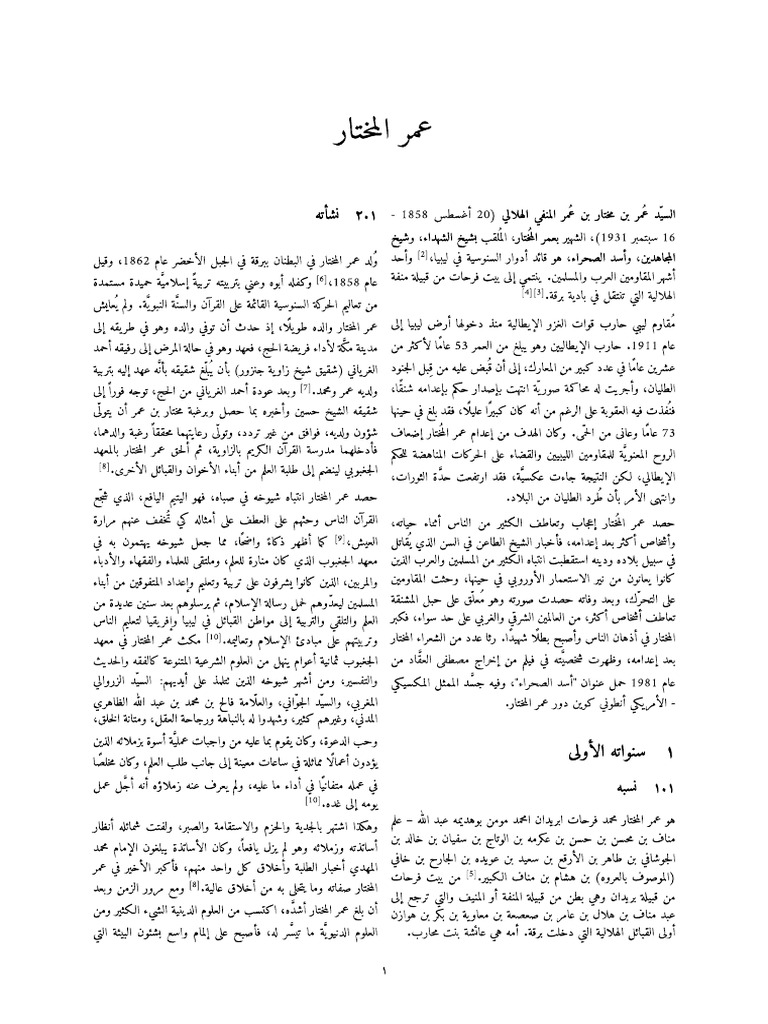 عمر المختار
السيّد عُمر بن مختار بن عُمر المنفي الهلالي (20 أغسطس 1858 -
16 سبتمبر 1931)، الشهير بعمر المُختار، الملُقب بشيخ الشهداء، وشيخ
المجاهدين، وأسد الصحراء، هو قائد أدوار السنوسية في ليبيا،[2] وأحد
أشهر المقاومين العرب والمسلمين. ينتمي إلى بيت فرحات من قبيلة منفة
الهلالية التي تنتقل في بادية برقة.[3][4]
مُقاوم ليبي حارب قوات الغزو الإيطالية منذ دخولها أرض ليبيا إلى
عام 1911. حارب الإيطاليين وهو يبلغ من العمر 53 عامًا لأكثر من
عشرين عامًا في عدد كبير من المعارك، إلى أن قُبض عليه من قِبل الجنود
الطليان، وأجريت له محاكمة صوريّة انتهت بإصدار حكم بإعدامه شنقًا،
فنُفذت فيه العقوبة على الرغم من أنه كان كبيرًا عليلًا، فقد بلغ في حينها
73 عامًا وعانى من الحمّى. وكان الهدف من إعدام عمر المُختار إضعاف
الروح المعنويَّة للمقاومين الليبيين والقضاء على الحركات المناهضة للحكم
الإيطالي، لكن النتيجة جاءت عكسيَّة، فقد ارتفعت حدَّة الثورات،
وانتهى الأمر بأن طُرد الطليان من البلاد.
حصد عمر المُختار إعجاب وتعاطف الكثير من الناس أثناء حياته،
وأشخاص أكثر بعد إعدامه، فأخبار الشيخ الطاعن في السن الذي يُقاتل
في سبيل بلاده ودينه استقطبت انتباه الكثير من المسلمين والعرب الذين
كانوا يعانون من نير الاستعمار الأوروبي في حينها، وحثت المقاومين
على التحرّك، وبعد وفاته حصدت صورته وهو مُعلّق على حبل المشنقة
تعاطف أشخاص أكثر، من العالمين الشرقي والغربي على حد سواء، فكبر
المختار في أذهان الناس وأصبح بطلًا شهيدًا. رثا عدد من الشعراء المختار
بعد إعدامه، وظهرت شخصيَّته في فيلم من إخراج مصطفى العقَّاد من
عام 1981 حمل عنوان "أسد الصحراء"، وفيه جسَّد الممثل المكسيكي
- الأمريكي أنطوني كوين دور عمر المختار.
١ سنواته الأولى
١.١ نسبه
هو عمر المختار محمد فرحات ابريدان امحمد مومن بوهديمه عبد الله – علم
مناف بن محسن بن حسن بن عكرمه بن الوتاج بن سفيان بن خالد بن
الجوشافي بن طاهر بن الأرقع بن سعيد بن عويده بن الجارح بن خافي
(الموصوف بالعروه) بن هشام بن مناف الكبير.[5] من بيت فرحات
من قبيلة بريدان وهي بطن من قبيلة المنفة أو المنيف والتي ترجع إلى
عبد مناف بن هلال بن عامر بن صعصعة بن معاوية بن بكر بن هوازن
أولى القبائل الهلالية التي دخلت برقة. أمه هي عائشة بنت محارب.
١.٢ نشأته
وُلد عمر المختار في البطنان ببرقة في الجبل الأخضر عام 1862، وقيل
عام 1858،[6] وكفله أبوه وعني بتربيته تربيةً إسلاميَّة حميدة مستمدة
من تعاليم الحركة السنوسية القائمة على القرآن والسنَّة النبويَّة. ولم يُعايش
عمر المختار والده طويلًا، إذ حدث أن توفي والده وهو في طريقه إلى
مدينة مكَّة لأداء فريضة الحج، فعهد وهو في حالة المرض إلى رفيقه أحمد
الغرياني (شقيق شيخ زاوية جنزور) بأن يُبلّغ شقيقه بأنَّه عهد إليه بتربية
ولديه عمر ومحمد.[7] وبعد عودة أحمد الغرياني من الحج، توجه فوراً إلى
شقيقه الشيخ حسين وأخبره بما حصل وبرغبة مختار بن عمر أن يتولّى
شؤون ولديه، فوافق من غير تردد، وتولّى رعايتهما محققاً رغبة والدهما،
فأدخلهما مدرسة القرآن الكريم بالزاوية، ثم ألحق عمر المختار بالمعهد
الجغبوبي لينضم إلى طلبة العلم من أبناء الأخوان والقبائل الأخرى.[8]
حصد عمر المختار انتباه شيوخه في صباه، فهو اليتيم اليافع، الذي شجّع
القرآن الناس وحثهم على العطف على أمثاله كي تُخفف عنهم مرارة
العيش،[9] كما أظهر ذكاءً واضحًا، مما جعل شيوخه يهتمون به في
معهد الجغبوب الذي كان منارة للعلم، وملتقى للعلماء والفقهاء والأدباء
والمربين، الذين كانوا يشرفون على تربية وتعليم وإعداد المتفوقين من أبناء
المسلمين ليعدّوهم لحمل رسالة الإسلام، ثم يرسلوهم بعد سنين عديدة من
العلم والتلقي والتربية إلى مواطن القبائل في ليبيا وإفريقيا لتعليم الناس
وتربيتهم على مبادئ الإسلام وتعاليمه.[10] مكث عمر المختار في معهد
الجغبوب ثمانية أعوام ينهل من العلوم الشرعية المتنوعة كالفقه والحديث
والتفسير، ومن أشهر شيوخه الذين تتلمذ على أيديهم: السيّد الزروالي
المغربي، والسيّد الجوّاني، والعلّامة فالح بن محمد بن عبد الله الظاهري
المدني، وغيرهم كثير، وشهدوا له بالنباهة ورجاحة العقل، ومتانة الخلق،
وحب الدعوة، وكان يقوم بما عليه من واجبات عمليَّة أسوة بزملائه الذين
يؤدون أعمالًا مماثلة في ساعات معينة إلى جانب طلب العلم، وكان مخلصًا
في عمله متفانيًا في أداء ما عليه، ولم يعرف عنه زملاؤه أنه أجَّل عمل
يومه إلى غده.[10]
وهكذا اشتهر بالجدية والحزم والاستقامة والصبر، ولفتت شمائله أنظار
أساتذته وزملائه وهو لم يزل يافعاً، وكان الأساتذة يبلغون الإمام محمد
المهدي أخبار الطلبة وأخلاق كل واحد منهم، فأكبر الأخير في عمر
المختار صفاته وما يتحلى به من أخلاق عالية.[8] ومع مرور الزمن وبعد
أن بلغ عمر المختار أشدَّه، اكتسب من العلوم الدينية الشيء الكثير ومن
العلوم الدنيويَّة ما تيسَّر له، فأصبح على إلمام واسع بشئون البيئة التي
١